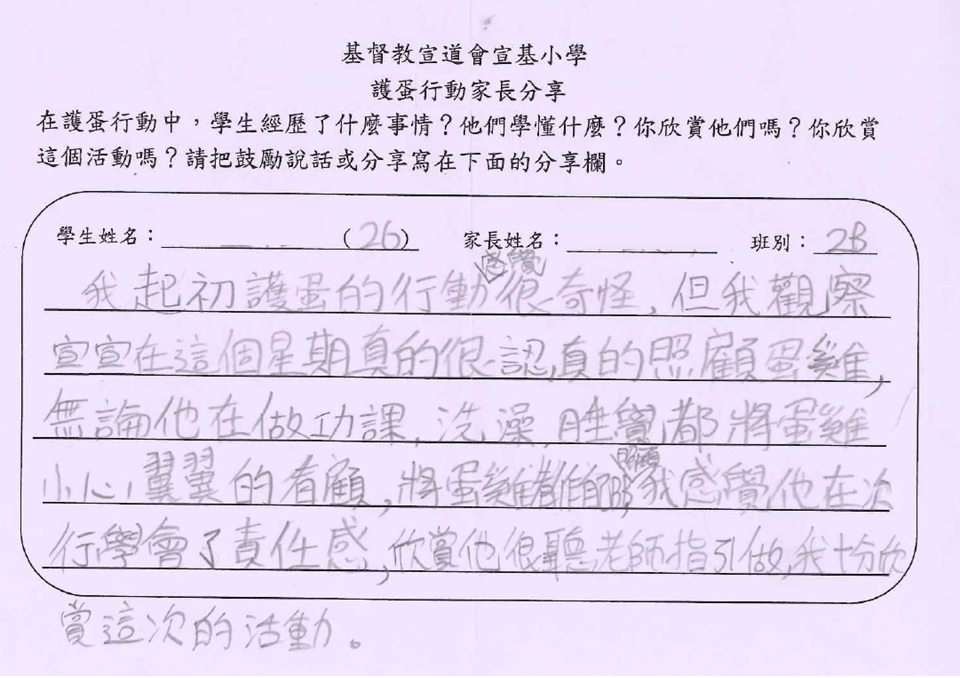 基督教宣道會宣基小學
護蛋行動家長分享
在護蛋行動中，學生經歷了什麼事情？他們學懂什麼？你欣賞他們嗎？你欣賞
這個活動嗎？請把鼓勵說話或分享寫在下面的分享欄。
學生姓名： (26) 家長姓名： 班別：2B
我起初護蛋的行動感覺很奇怪，但我觀察
宣宣在這個星期真的很認真的照顧蛋雞，
無論他在做功課，洗澡，睡覺都將蛋雞
小心翼翼的看顧，將蛋雞照顧，我感覺他在次
行學會了責任感，欣賞他很聽老師指引做，我十分欣
賞這次的活動。